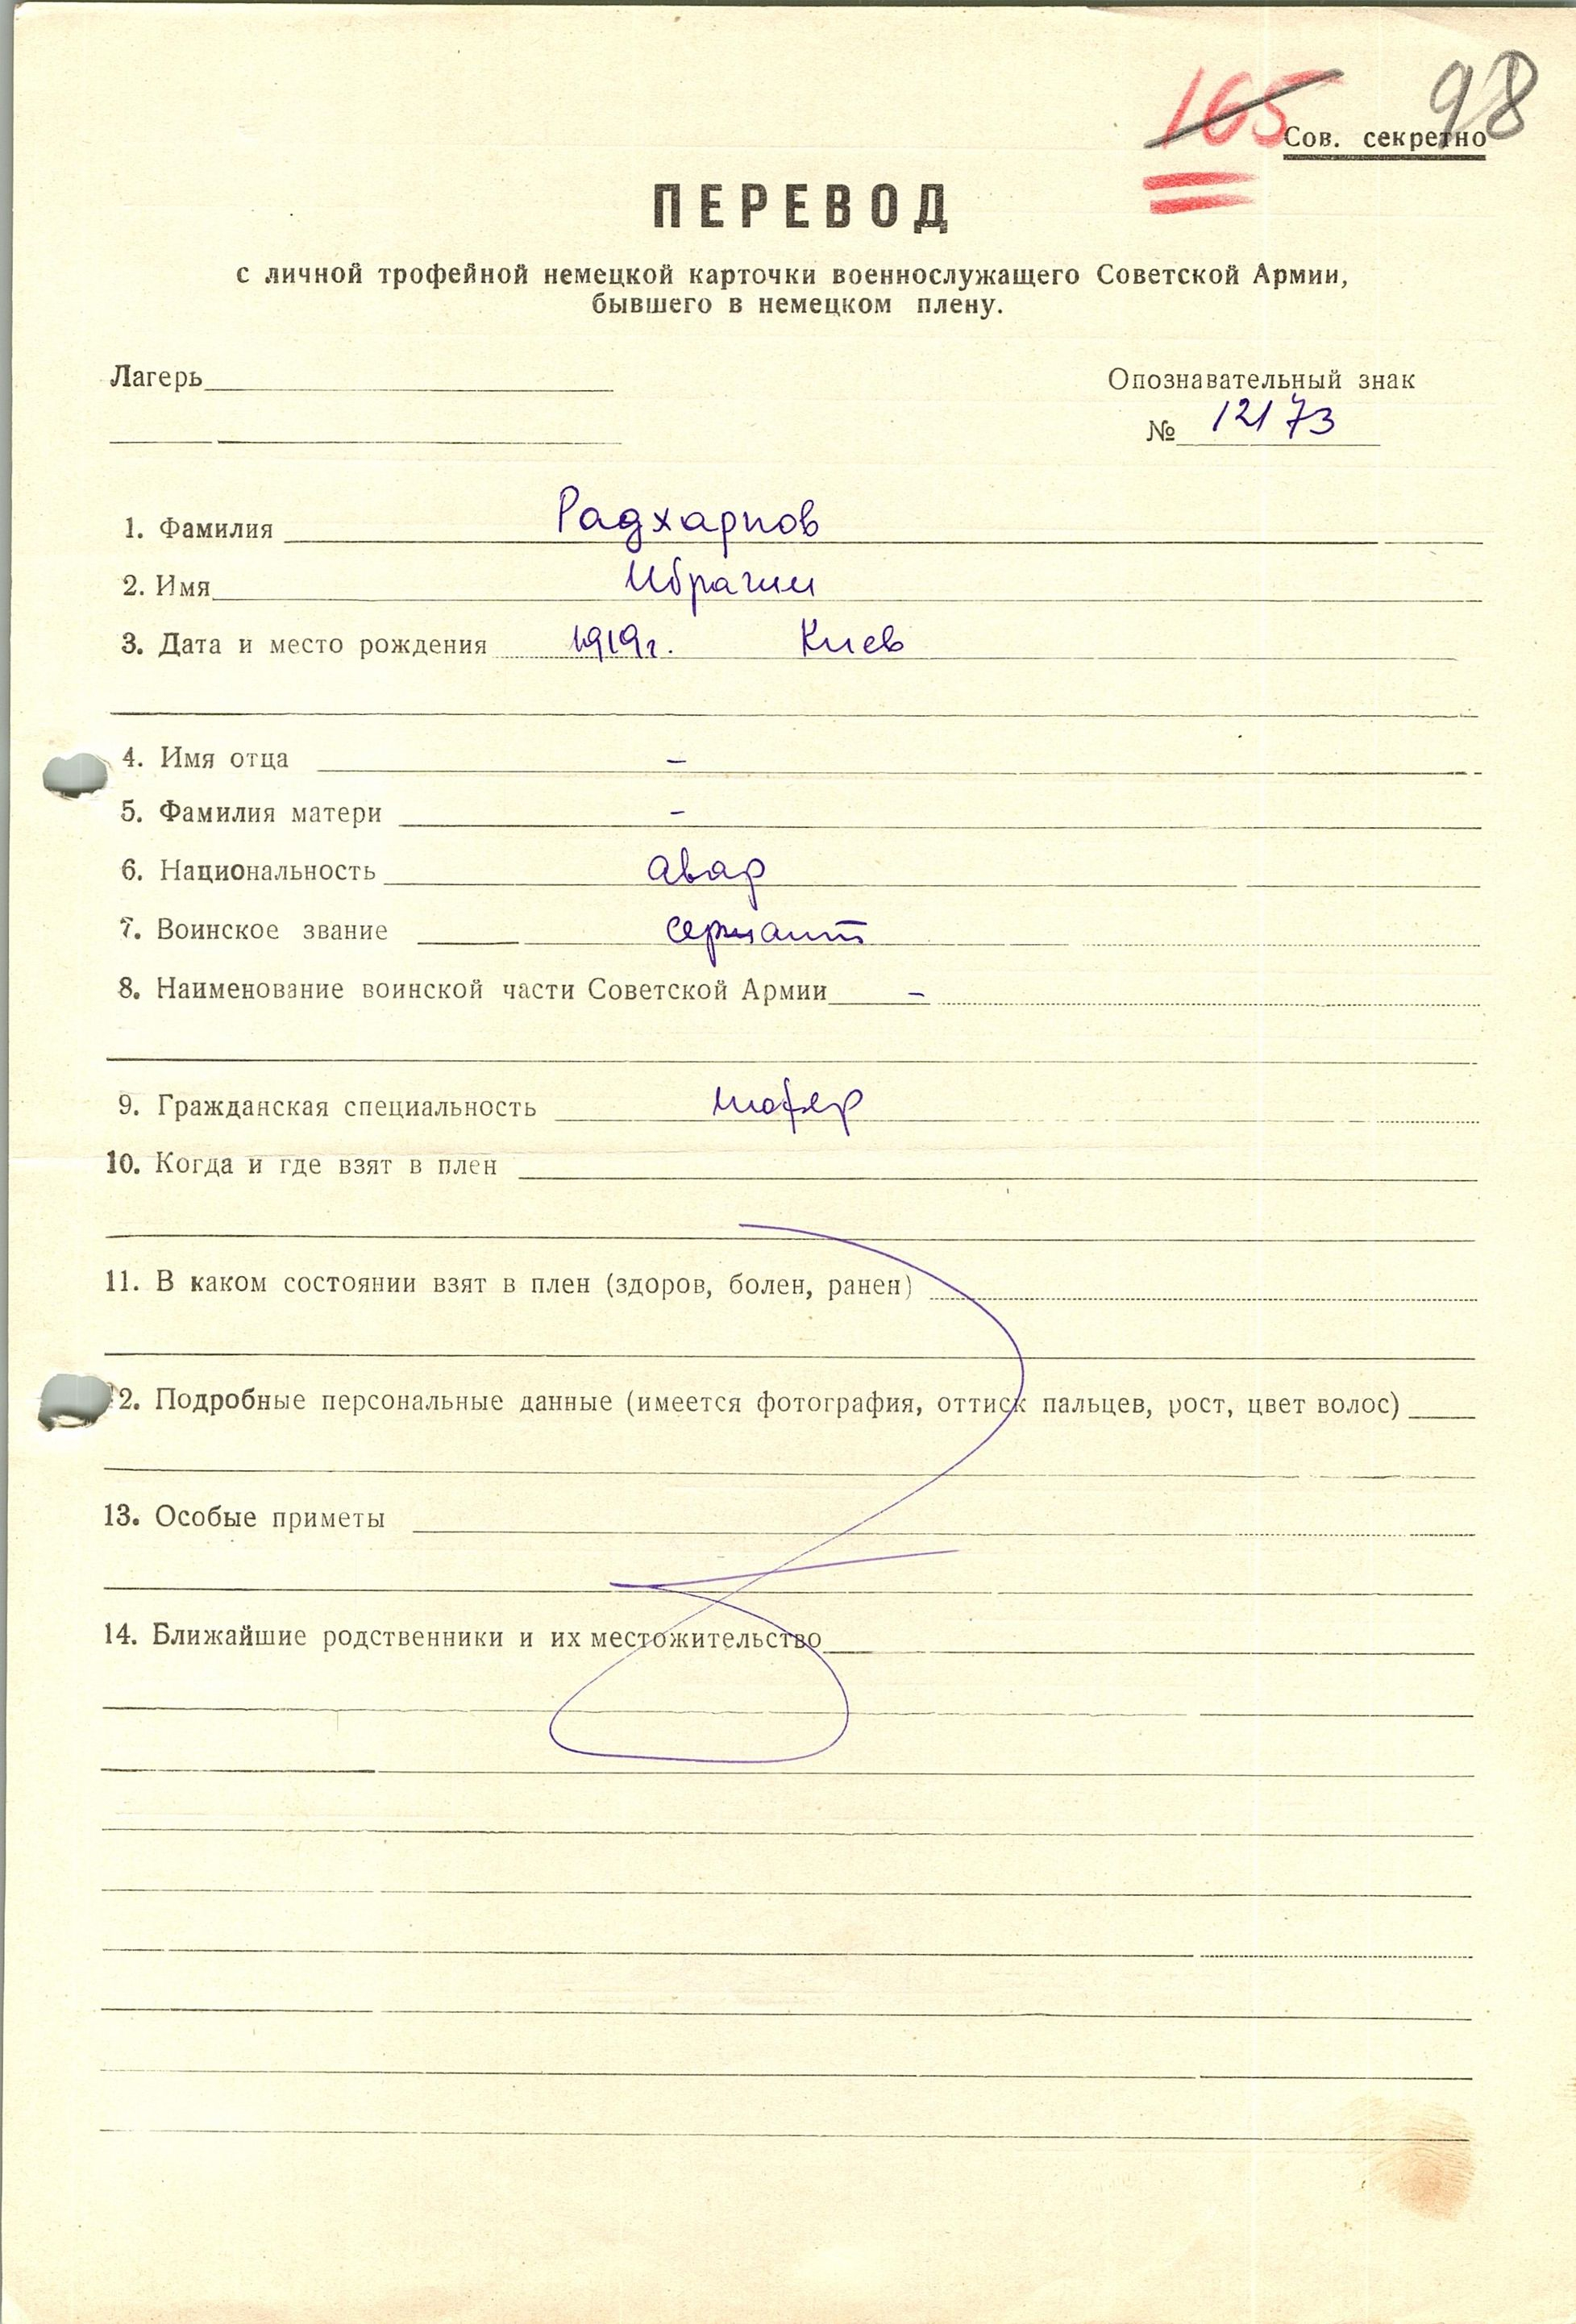 165 98
Сов. секретно
ПЕРЕВОД
с личной трофейной немецкой карточки военнослужащего Советской Армии,
бывшего в немецком плену.
Лагерь Опознавательный знак
№ 12173
1. Фамилия Радхарпов
2. Имя Ибрагим
3. Дата и место рождения 1919г. Киев
4. Имя отца –
5. Фамилия матери –
6. Национальность авар
7. Воинское звание сержант
8. Наименование воинской части Советской Армии –
9. Гражданская специальность шофер
10. Когда и где взят в плен
11. В каком состоянии взят в плен (здоров, болен, ранен)
12. Подробные персональные данные (имеется фотография, оттиск пальцев, рост, цвет волос)
13. Особые приметы
14. Ближайшие родственники и их местожительство